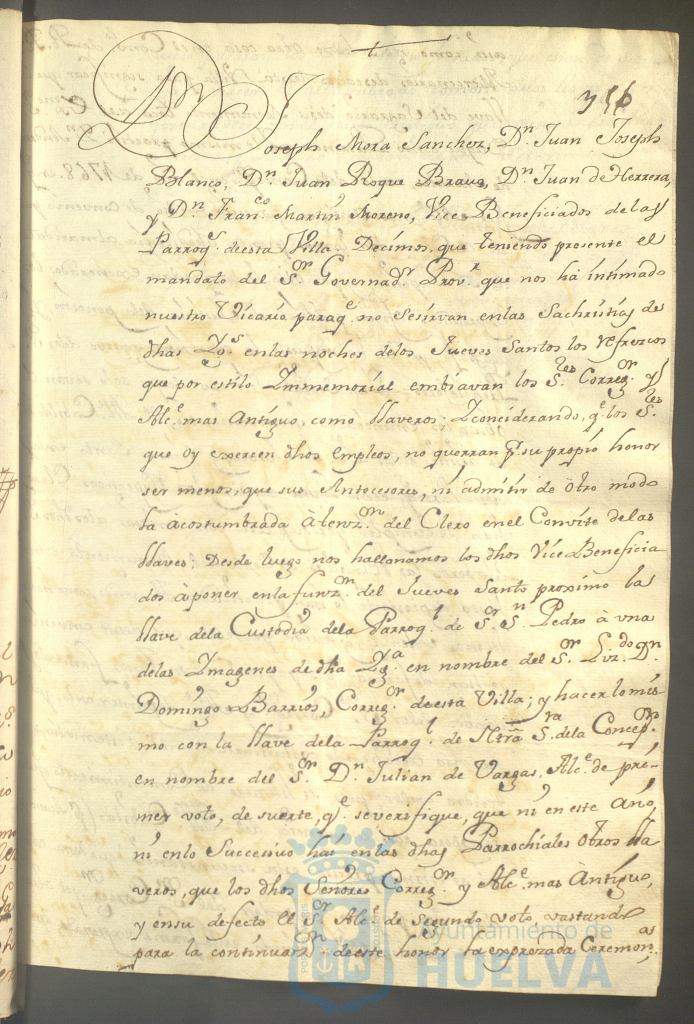 356
Joseph Mora Sanchez, Dn. Juan Joseph
Blanco, Dn. Juan Roque Bravo, Dn. Juan de Herrera,
y Dn. Franco. Martin Moreno, Vice Beneficiados de las
Parroqs. de esta Villa. Decimos que teniendo presente el
mandato del Sor. Governador. Provr. que nos há intimado
nuestro Vicario paraqe. no se sirvan en las Sachristias de
dhas Ygs. en las noches de los Jueves Santos los refrescos
que por estilo Immemorial embiavan los Sres. Corregor. y
Alce. mas Antiguo, como llaveros; Y conciderando, qe. los Sres.
que oy exercen dhos empleos, no querran pr. su propio honor
ser menos, que sus Antecesores, ni admitir de otro modo
la àcostumbrada Àtenzon. del Clero en el Convite de las
llaves; Desde luego nos hallanamos los dhos Vice Beneficia
dos à poner en la funzon. del Jueves Santo proximo la
llave de la Custodia de la Parroql. de Sor. Sn. Pedro à una
de las Ymagenes de dha Yga. en nombre del Sor. Lizdo. Dn.
Domingo Barrios, Corregor. de esta Villa; y hacer lo mis-
mo con la llave de la Parroql. de Ntra Sra. de la Concepon.
en nombre del Sor. Dn. Julian de Vargas, Alce. de pri-
mer voto, de suerte, qe. se verifique, que ni en este Año,
ni en lo Successivo hai en las dhas Parrochiales otros lla
veros, que los dhos Señores Corregor. y Alce. mas Àntiguo,
y en su defecto el Sor. Alce. de Segundo voto, vastando
para la continuazon. de este honor la exprezada Ceremona.
Ayuntamiento de
HUELVA